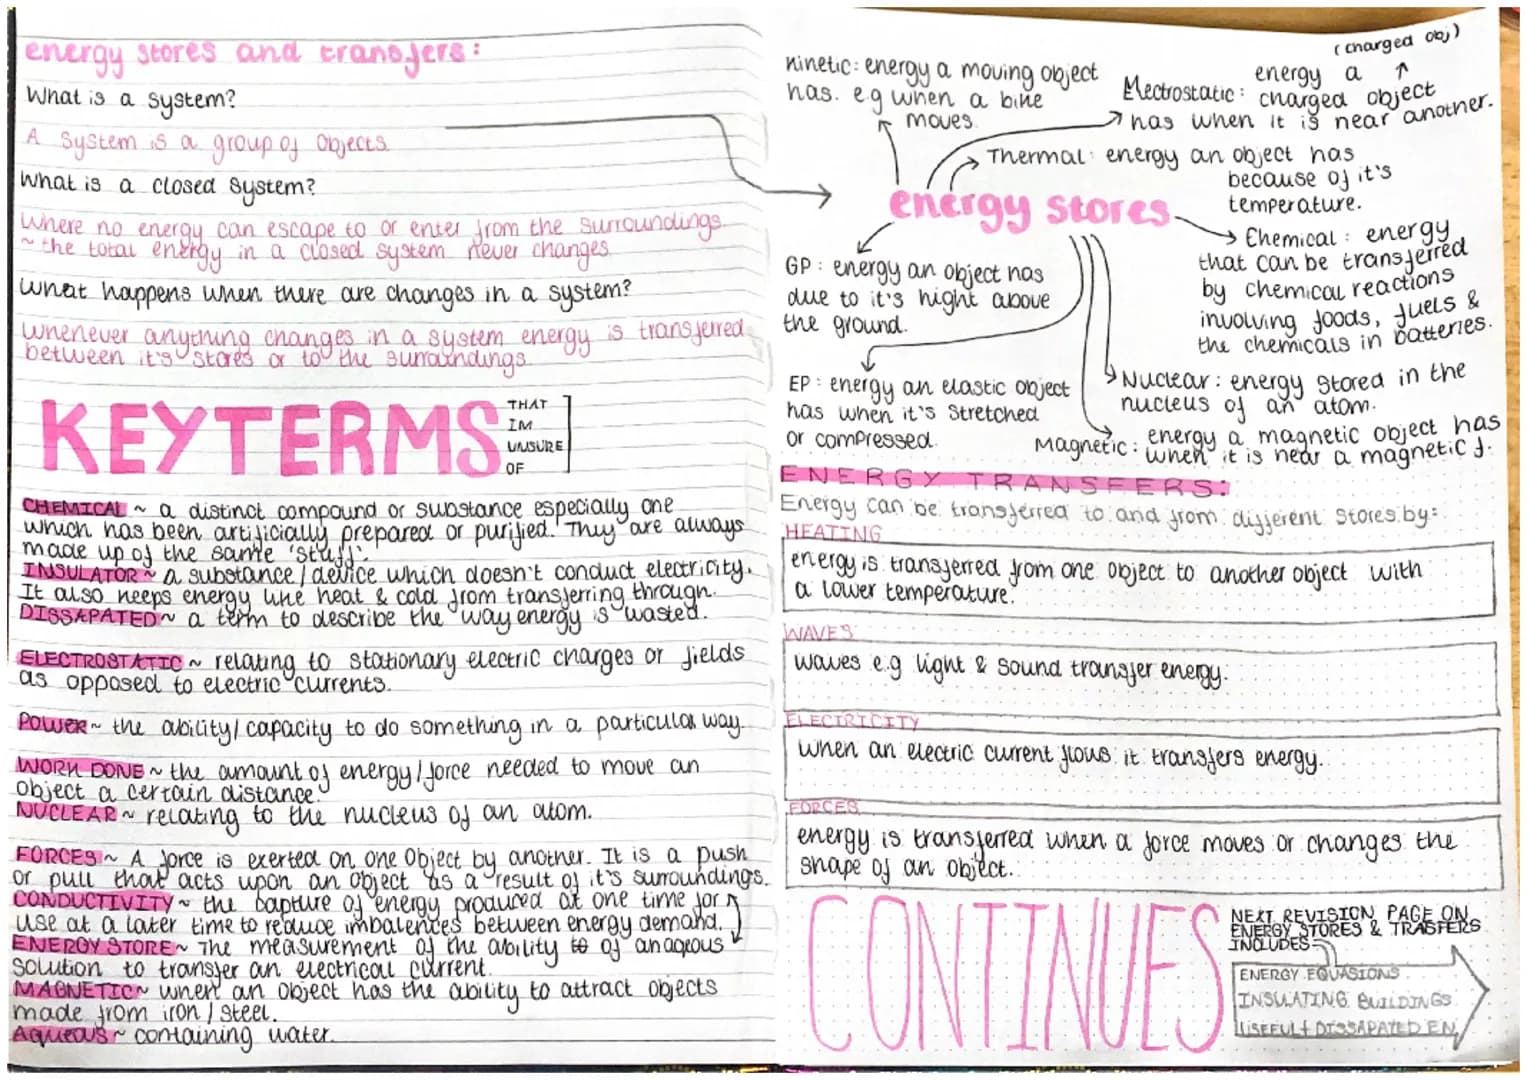 energy stores and transfers:
What is a system?
A System is a group of Objects.
What is a closed System?
Where no energy can escape to or enter from the surroundings.
~ the total energy in a closed system never changes.
What happens when there are changes in a system?
Whenever anything changes in a system energy is transferred
between it's stores or to the surroundings.
KEYTERMS
THAT
IM
UNSURE
OF
CHEMICAL ~ a distinct compound or substance especially one
which has been artificially prepared or purified. They are always
made up of the same 'stuff'.
INSULATOR ~ a substance / device which doesn't conduct electricity.
It also keeps energy like heat & cold from transferring through.
DISSAPATED ~ a term to describe the way energy is wasted.
ELECTROSTATIC ~ relating to stationary electric charges or fields
as opposed to electric currents.
POWER ~ the ability/capacity to do something in a particular way.
WORK DONE ~ the amount of energy/force needed to move an
object a certain distance.
NUCLEAR ~ relating to the nucleus of an atom.
FORCES ~ A force is exerted on one object by another. It is a push
or pull that acts upon an object as a result of it's surroundings.
CONDUCTIVITY ~ the capture of energy produced at one time for
use at a later time to reduce imbalences between energy demand.
ENERGY STORE ~ The measurement of the ability to of an aqeous
solution to transfer an electrical current.
MAGNETIC ~ when an object has the ability to attract objects
made from iron / steel.
Aqueous ~ containing water.
kinetic: energy a moving object
has. e.g when a bike
moves.
(charged obj)
Electrostatic: energy a
charged object
has when it is near another.
Thermal: energy an object has
because of it's
temperature.
energy stores
Chemical: energy
that can be transferred
by chemical reactions
involving foods, fuels &
the chemicals in batteries.
GP: energy an object has
due to it's hight above
the ground.
EP: energy an elastic object
has when it's stretched
or compressed.
Nuclear: energy stored in the
nucleus of an atom.
Magnetic: energy a magnetic object has
when it is near a magnetic f.
ENERGY TRANSFERS:
Energy can be transferred to and from different stores by:
HEATING
energy is transferred from one object to another object with
a lower temperature.
WAVES
waves e.g light & sound transfer energy.
ELECTRICITY
when an electric current flows it transfers energy.
FORCES
energy is transferred when a force moves or changes the
shape of an object.
CONTINUES
NEXT REVISION PAGE ON
ENERGY STORES & TRASFERS
INCLUDES
ENERGY EQUASIONS
INSULATING BUILDINGS
USEFUL + DISSAPATED EN